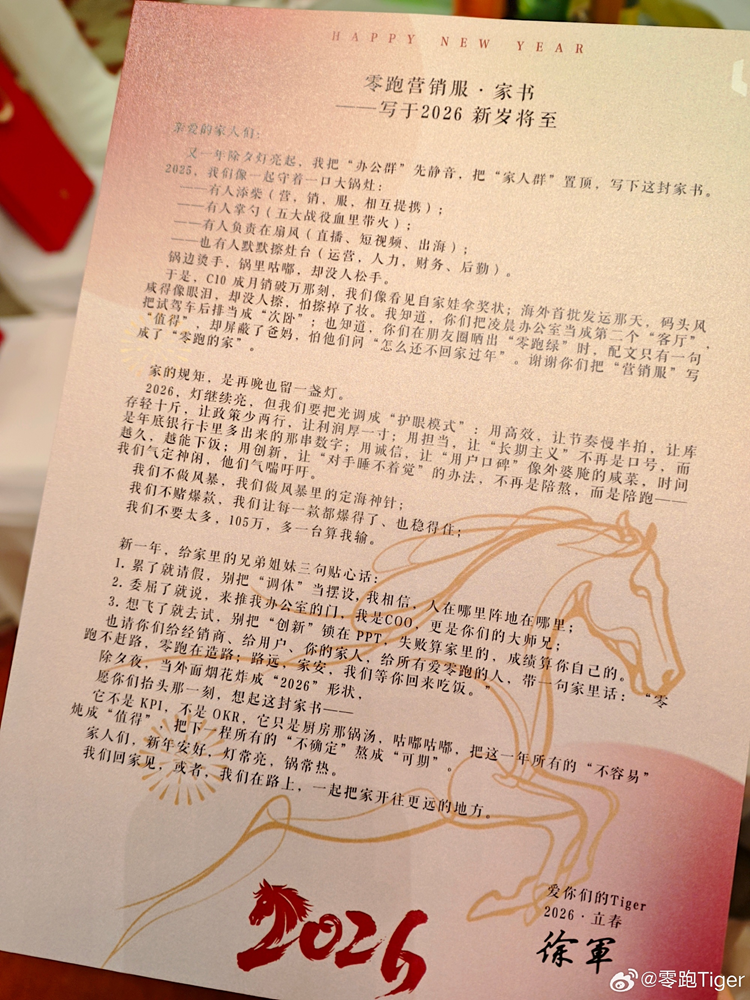 HAPPY NEW YEAR
零跑营销服·家书
——写于2026 新岁将至
亲爱的家人们：
又一年除夕灯亮起，我把“办公群”先静音，把“家人群”置顶，写下这封家书。
2025，我们像一起守着一口大锅灶：
——有人添柴（营，销，服，相互提携）；
——有人掌勺（五大战役血里带火）；
——有人负责在扇风（直播、短视频、出海）；
——也有人默默擦灶台（运营，人力，财务、后勤）。
锅边烫手，锅里咕嘟，却没人松手。
于是，C10 成月销破万那刻，我们像看见自家娃拿奖状；海外首批发运那天，码头风
咸得像眼泪，却没人擦，怕擦掉了妆。我知道，你们把凌晨办公室当成第二个“客厅”，
把试驾车后排当成“次卧”；也知道，你们在朋友圈晒出“零跑绿”时，配文只有一句
“值得”，却屏蔽了爸妈，怕他们问“怎么还不回家过年”。谢谢你们把“营销服”写
成了“零跑的家”。
家的规矩，是再晚也留一盏灯。
2026，灯继续亮，但我们要把光调成“护眼模式”：用高效，让节奏慢半拍，让库
存轻十斤，让政策少两行，让利润厚一寸；用担当，让“长期主义”不再是口号，而
是年底银行卡里多出来的那串数字；用诚信，让“用户口碑”像外婆腌的咸菜，时间
越久，越能下饭；用创新，让“对手睡不着觉”的办法，不再是陪熬，而是陪跑——
我们气定神闲，他们气喘吁吁。
我们不做风暴，我们做风暴里的定海神针；
我们不赌爆款，我们让每一款都爆得了、也稳得住；
我们不要太多，105万，多一台算我输。
新一年，给家里的兄弟姐妹三句贴心话：
1. 累了就请假，别把“调休”当摆设，我相信，人在哪里阵地在哪里；
2. 委屈了就说，来推我办公室的门，我是COO，更是你们的大师兄；
3. 想飞了就去试，别把“创新”锁在 PPT，失败算家里的，成绩算你自己的。
也请你们给经销商、给用户、你的家人，给所有爱零跑的人，带一句家里话：“零
跑不赶路，零跑在造路；路远，家安，我们等你回来吃饭。”
除夕夜，当外面烟花炸成“2026”形状，
愿你们抬头那一刻，想起这封家书——
它不是 KPI，不是 OKR，它只是厨房那锅汤，咕嘟咕嘟，把这一年所有的“不容易”
炖成“值得”，把下一程所有的“不确定”熬成“可期”。
家人们，新年安好，灯常亮，锅常热。
我们回家见，或者，我们在路上，一起把家开往更远的地方。
爱你们的Tiger
2026·立春
徐軍
2026
@零跑Tiger